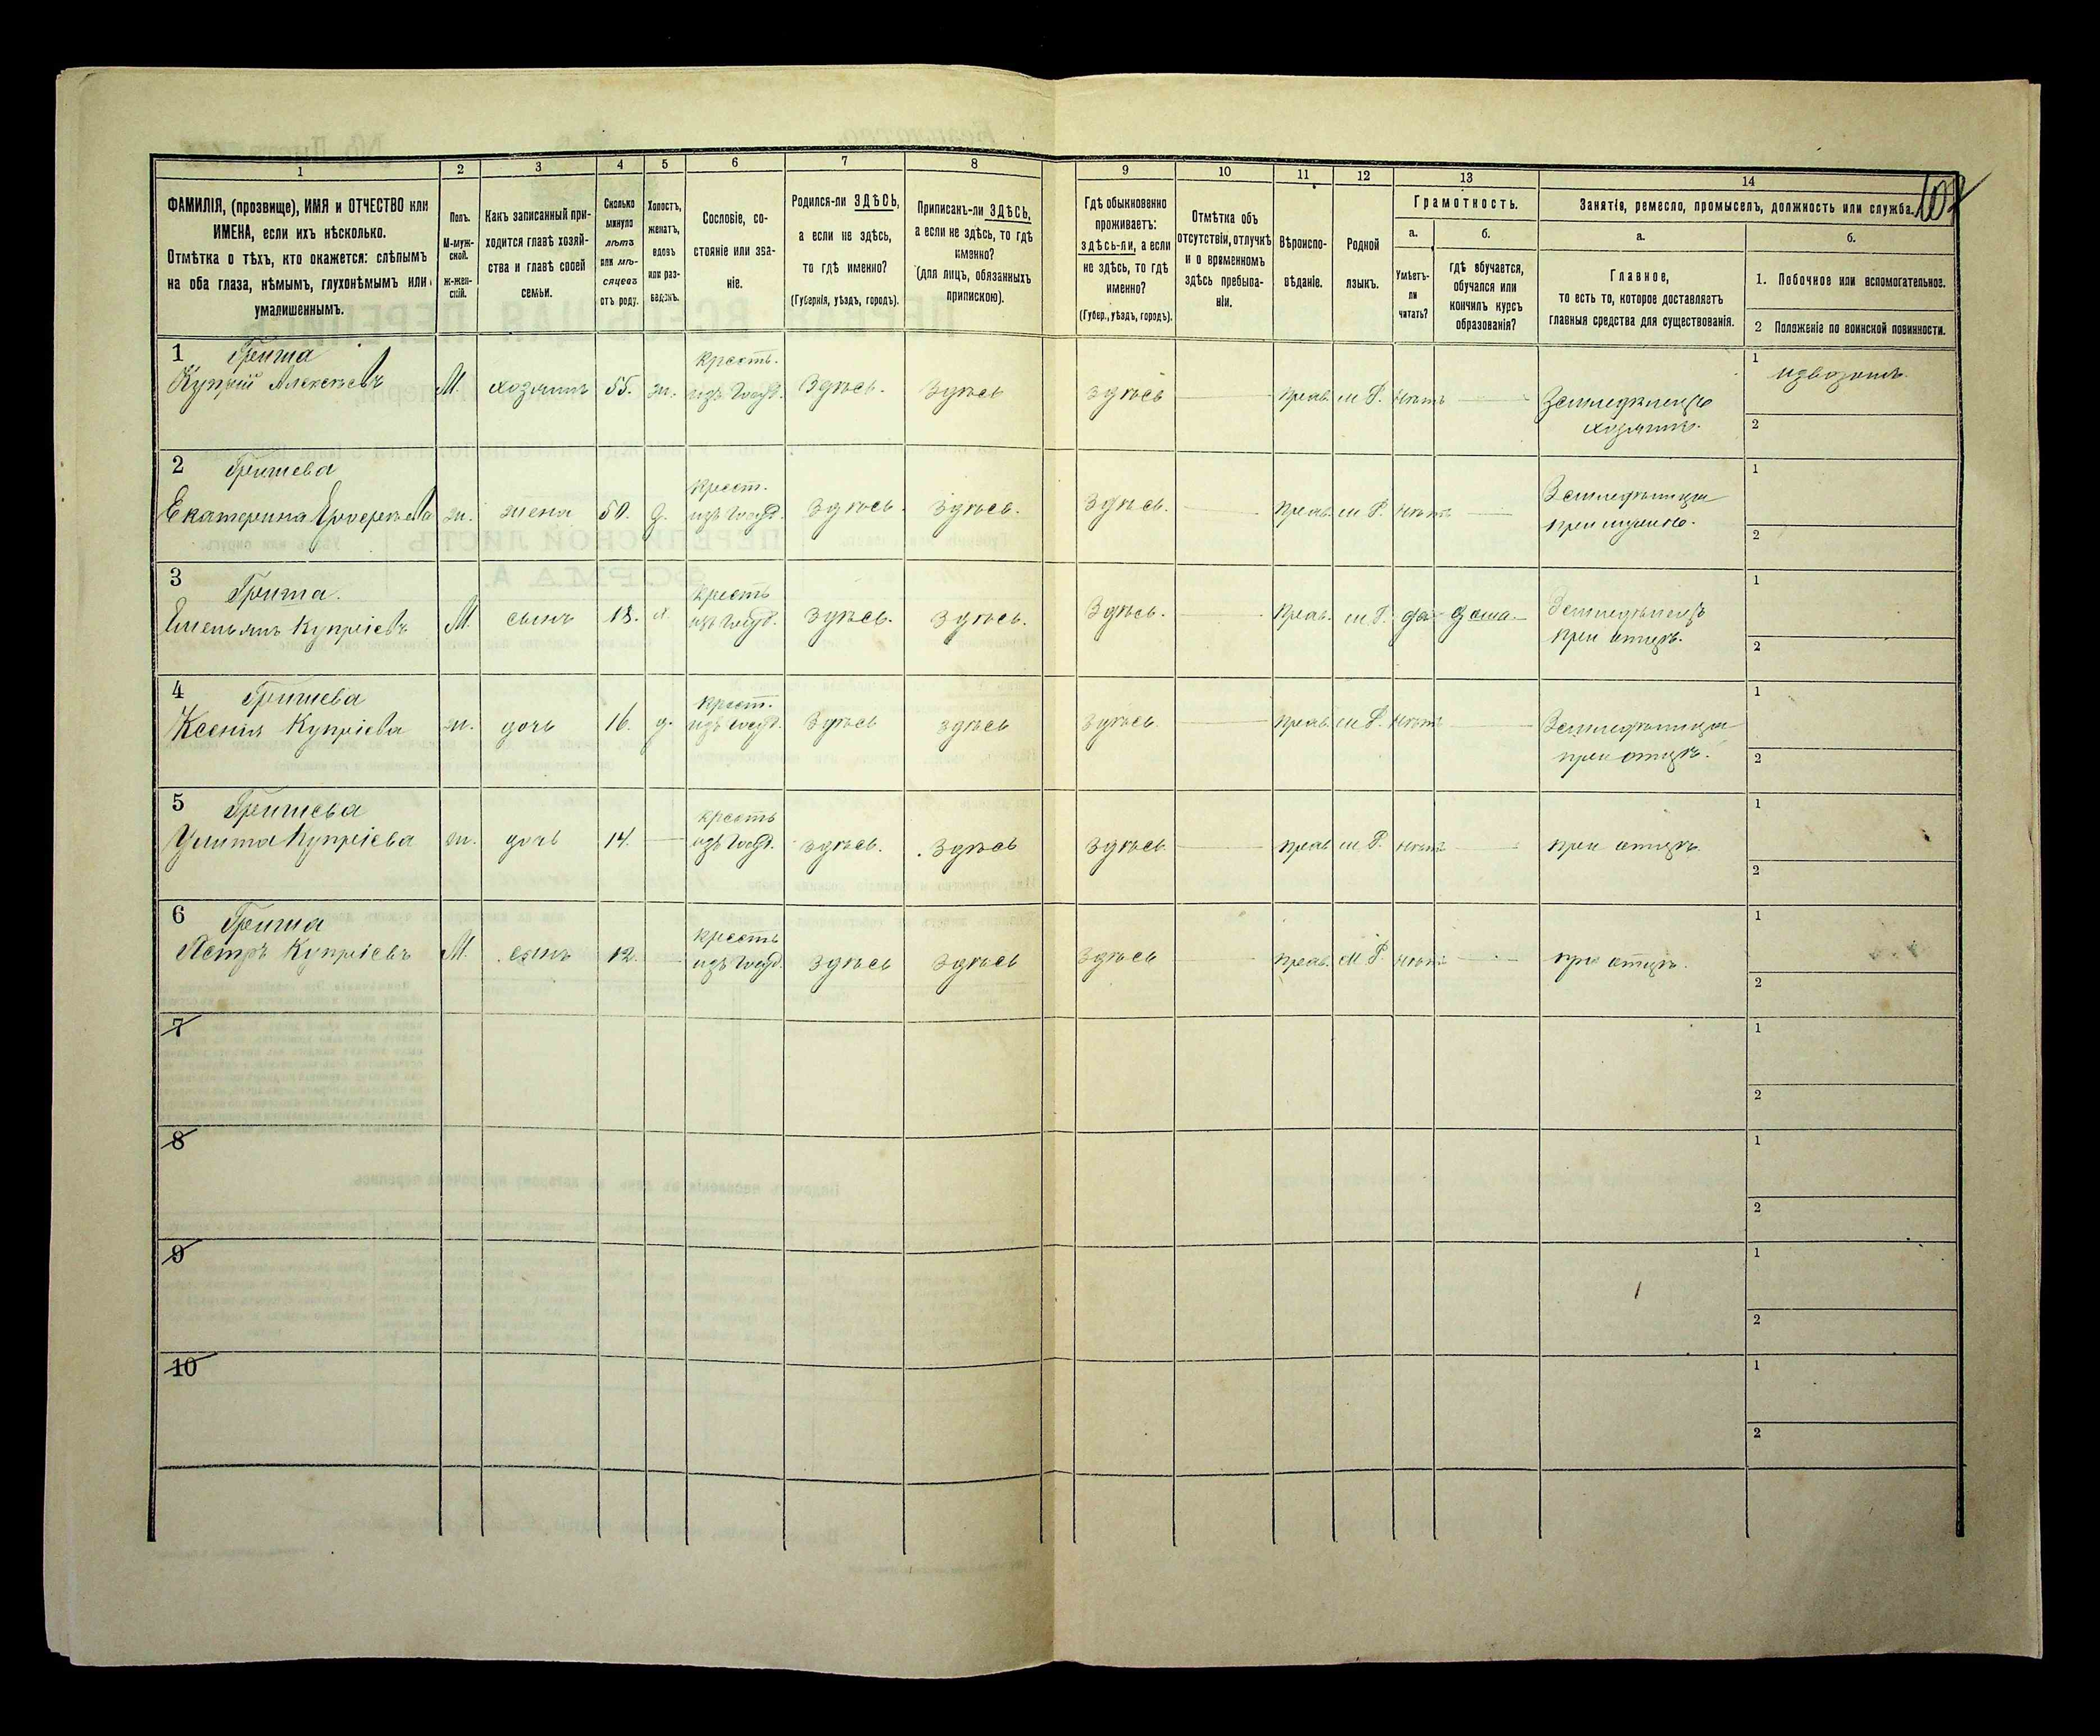 1
2
3
4
5
6
7
8
9
10
11
12
13
14
ФАМИЛІЯ, (прозвище), ИМЯ и ОТЧЕСТВО или
ИМЕНА, если ихъ нѣсколько.
Отмѣтка о тѣхъ, кто окажется: слѣпымъ
на оба глаза, нѣмымъ, глухонѣмымъ или
умалишеннымъ.
Полъ.
М-муж-
ской.
ж-жен-
скій.
Какъ записанный при-
ходится главѣ хозяй-
ства и главѣ своей
семьи.
Сколько
минуло
лѣтъ
или мѣ-
сяцевъ
отъ роду.
Холостъ,
женатъ,
вдовъ
или раз-
веденъ.
Сословіе, со-
стояніе или зва-
ніе.
Родился-ли ЗДѢСЬ,
а если не здѣсь,
то гдѣ именно?
(Губернія, уѣздъ, городъ).
Приписанъ-ли ЗДѢСЬ,
а если не здѣсь, то гдѣ
именно?
(Для лицъ, обязанныхъ
припискою).
Гдѣ обыкновенно
проживаетъ:
здѣсь-ли, а если
не здѣсь, то гдѣ
именно?
(Губер., уѣздъ, городъ).
Отмѣтка объ
отсутствіи, отлучкѣ
и о временномъ
здѣсь пребыва-
ніи.
Вѣроиспо-
вѣданіе.
Родной
языкъ.
Грамотность.
а.
Умѣетъ-
ли
читать?
б.
гдѣ обучается,
обучался или
кончилъ курсъ
образованія?
Занятіе, ремесло, промыселъ, должность или служба.
а.
Главное,
то есть то, которое доставляетъ
главныя средства для существованія.
б.
1. Побочное или вспомогательное.
2 Положеніе по воинской повинности.
1 Гриша
Купрій Алексѣевъ М. хозяинъ 55. ж. крестъ. изъ Госуд. Здѣсь. Здѣсь здѣсь прав. м Р. нѣтъ Земледѣлецъ
хозяинъ.
1 извозомъ
2
2 Гришева
Екатерина ж. жена 50. з. крест. изъ Госуд. Здѣсь. Здѣсь. Здѣсь. прав. м Р. нѣтъ Земледѣлица
при мужѣ.
1
2
3 Гриша.
Емельянъ Купріевъ М. сынъ 18. х. крестъ изъ Госуд. Здѣсь. Здѣсь. Здѣсь. прав. м Р. да дома Земледѣлецъ
при отцѣ.
1
2
4 Гришева
Ксенія Купріева ж. дочь 16. д. крест. изъ Госуд. Здѣсь здѣсь здѣсь. прав. м Р. нѣтъ Земледѣлица
при отцѣ.
1
2
5 Гришева
Улита Купріева ж. дочь 14. крестъ изъ Госуд. здѣсь. Здѣсь Здѣсь прав. м Р. нѣтъ при отцѣ
1
2
6 Гриша
Петръ Купріевъ М. сынъ 12. крестъ изъ Госуд. Здѣсь Здѣсь Здѣсь прав. м Р. нѣтъ при отцѣ.
1
2
7
1
2
8
1
2
9
1
2
10
1
2